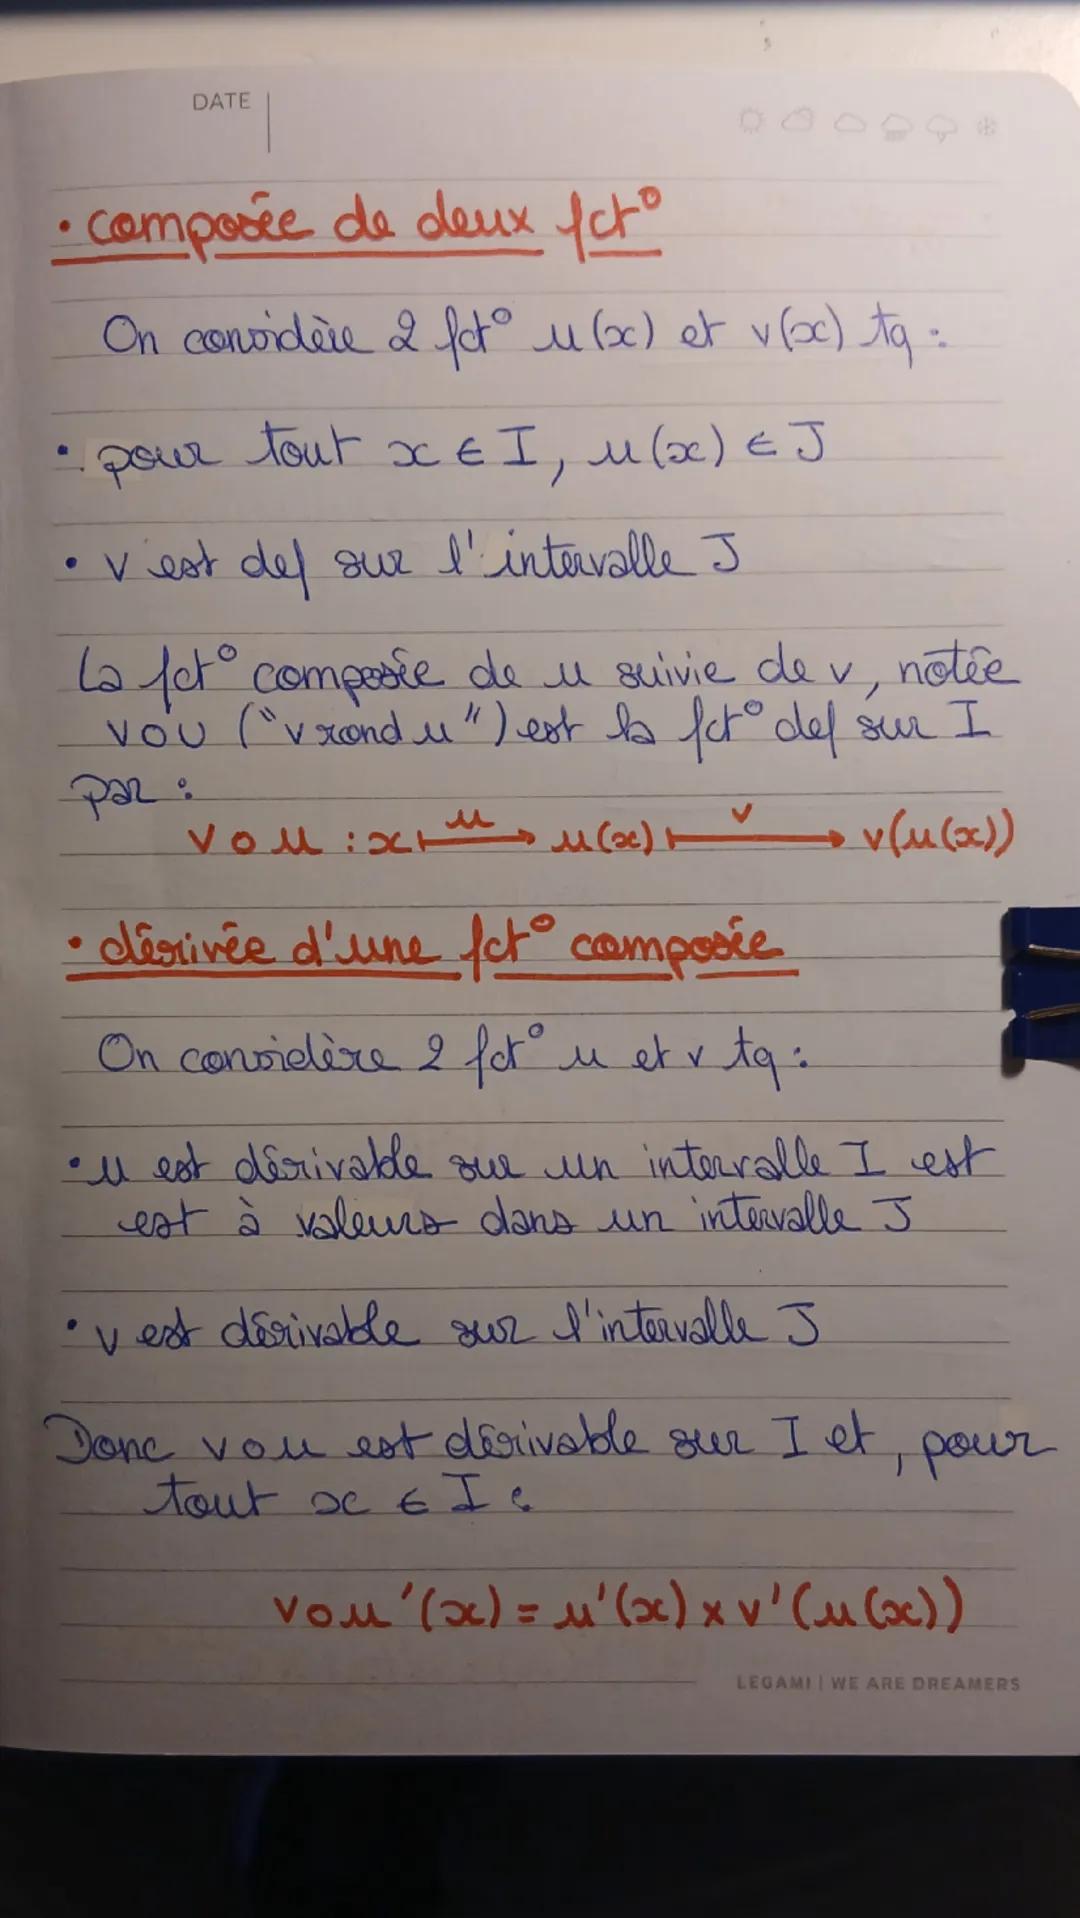 DATE
• composée de deux fct°
On considère 2 fct° u(x) et v(x) tq :
• pour tout x ∈ I, u(x) ∈ J
• v est def sur l'intervalle J
la fct° composée de u suivie de v, notée
vou ("v rond u") est la fct° def sur I
par :
vou : x ⟼ᵘ u(x) ⟼ᵛ v(u(x))
• dérivée d'une fct° composée
On considère 2 fct° u et v tq :
• u est dérivable sur un intervalle I est
est à valeurs dans un intervalle J
• v est dérivable sur l'intervalle J
Donc vou est dérivable sur I et, pour
tout x ∈ I :
vou'(x) = u'(x) x v'(u(x))
LEGAMI | WE ARE DREAMERS